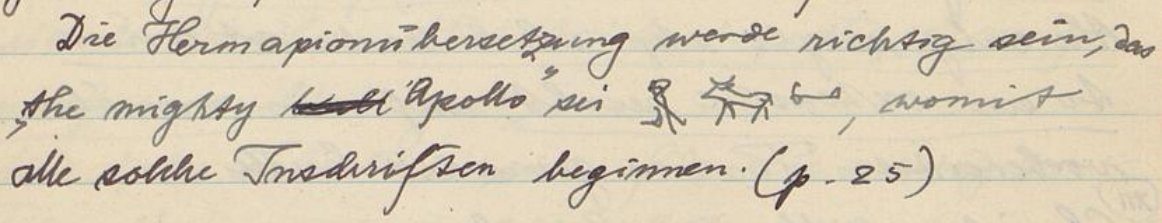 Die Hermapionübersetzung werde richtig sein, das
„the mighty Apollo“ sei 𓅃 𓃒 𓂡, womit
alle solche Inschriften beginnen. (p. 25)